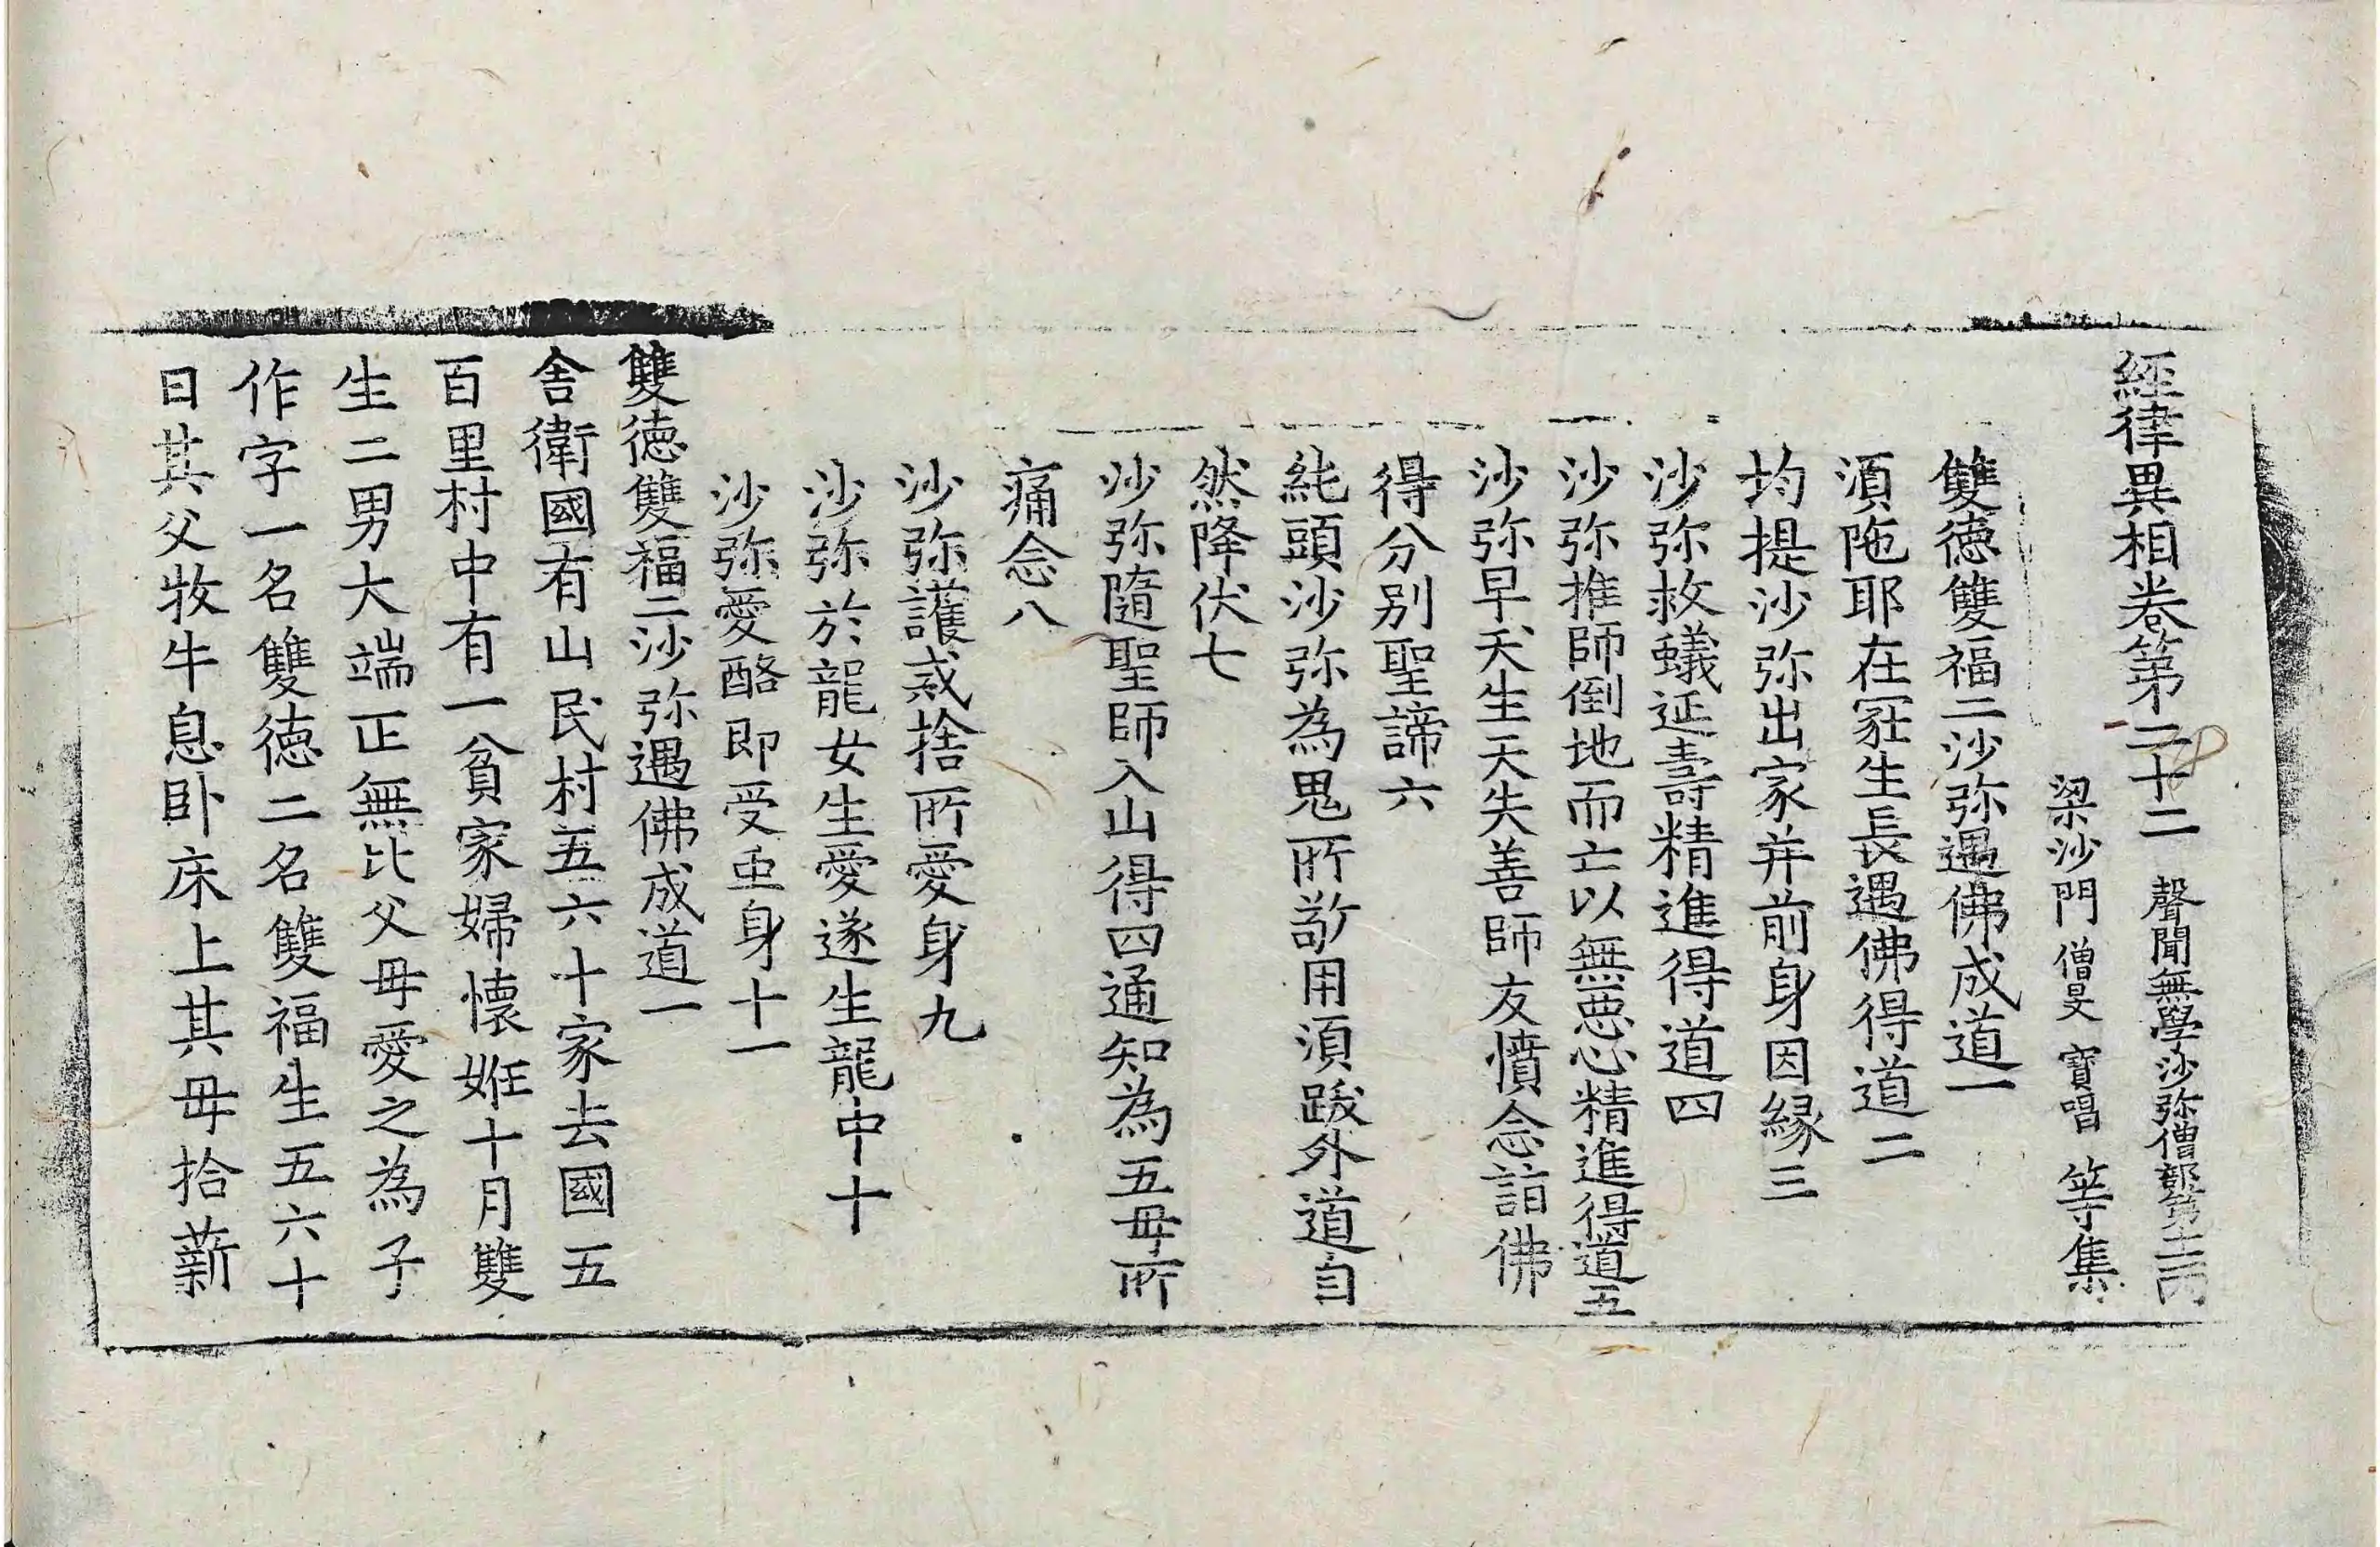 經律異相卷第二十二 聲聞無學沙弥僧部第十一 丙
梁沙門僧旻寶唱等集
雙德雙福二沙弥遇佛成道一
湏陁耶在冡生長遇佛得道二
均提沙弥出家并前身因緣三
沙弥救蟻延壽精進得道四
沙弥推師倒地而亡以無惡心精進得道五
沙弥早夭生天失善師友憤念詣佛
得分別聖諦六
純頭沙弥為鬼所敬用湏跋外道自
然降伏七
沙弥隨聖師入山得四通知為五母所
痛念八
沙弥護戒捨所愛身九
沙弥於龍女生愛遂生龍中十
沙弥愛酪即受虫身十一
雙德雙福二沙弥遇佛成道一
舍衛國有山民村五六十家去國五
百里村中有一貧家婦懷姙十月雙
生二男大端正無比父母愛之為子
作字一名雙德二名雙福生五六十
日其父牧牛息卧床上其母拾薪